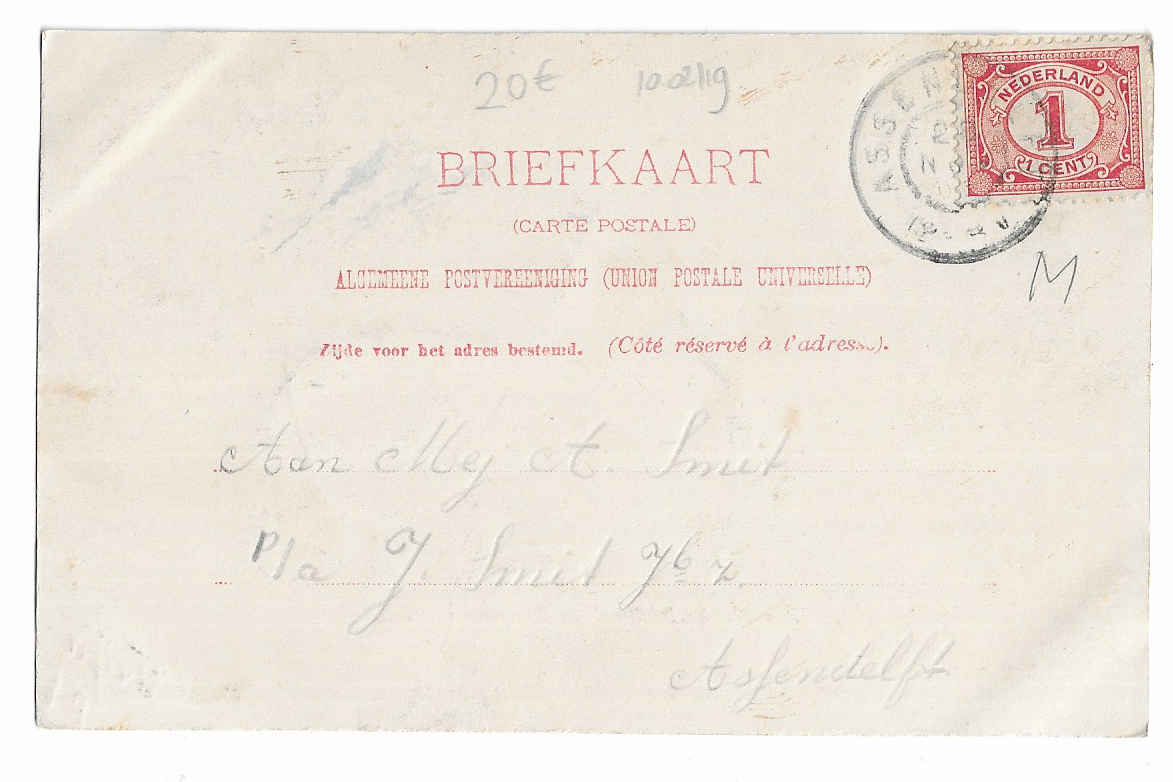 20€ 10.02/19
NEDERLAND
1
1 CENT
ASSEN
BRIEFKAART
(CARTE POSTALE)
ALGEMEENE POSTVEREENIGING (UNION POSTALE UNIVERSELLE)
M
Zijde voor het adres bestemd. (Côté réservé à l'adresse).
Aan Mej A. Smit
p/a J. Smit Jbz.
Assendelft